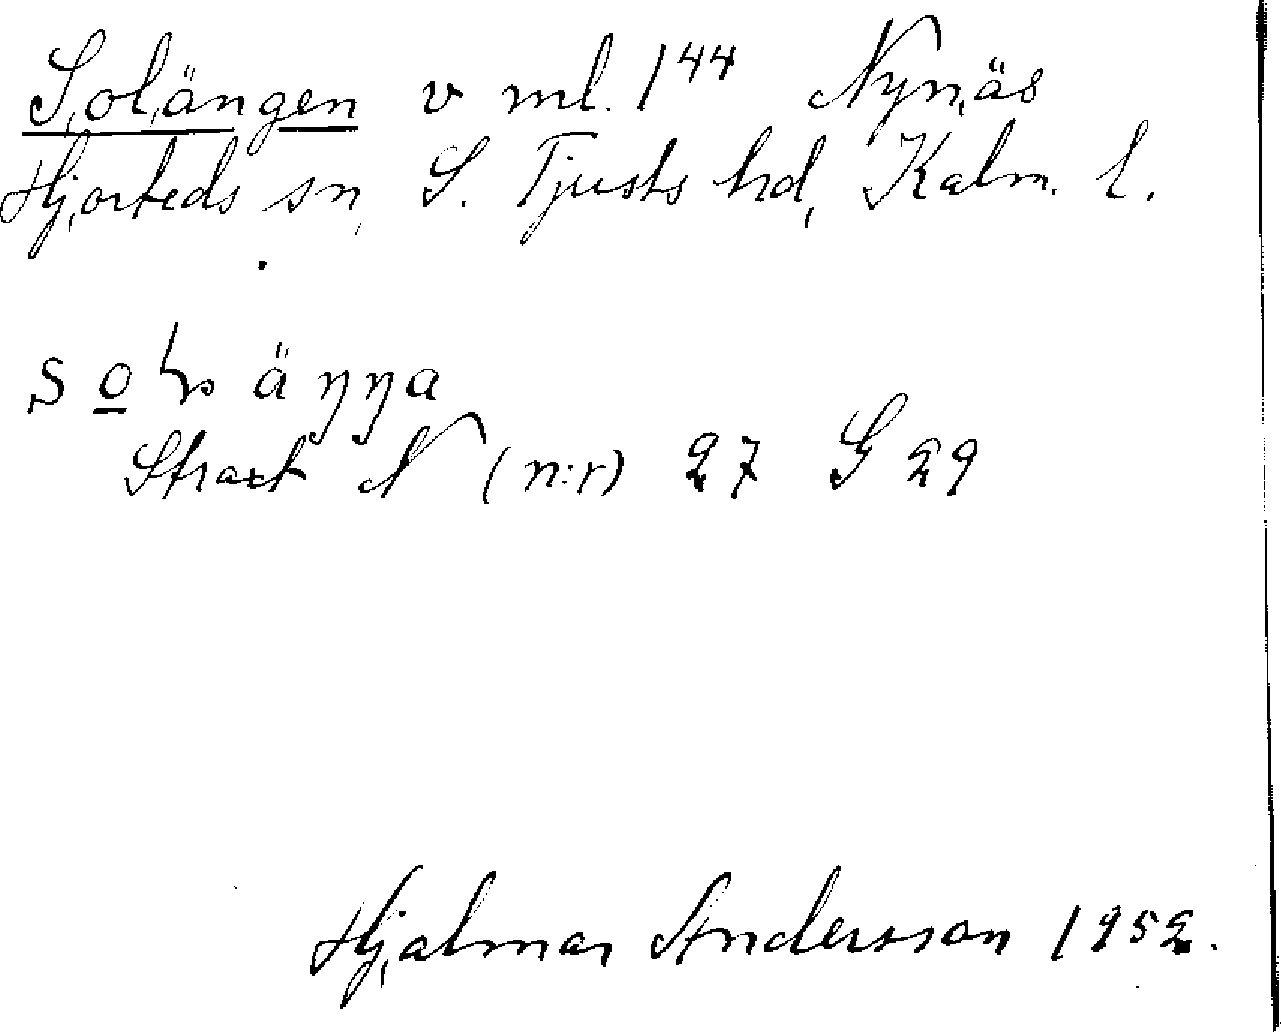 Solängen v ml. 144 Nynäs
Hjorteds sn, S. Tjusts hd, Kalm. l.
Strax N (n:r) 27 G 29
Hjalmar Andersson 1952.